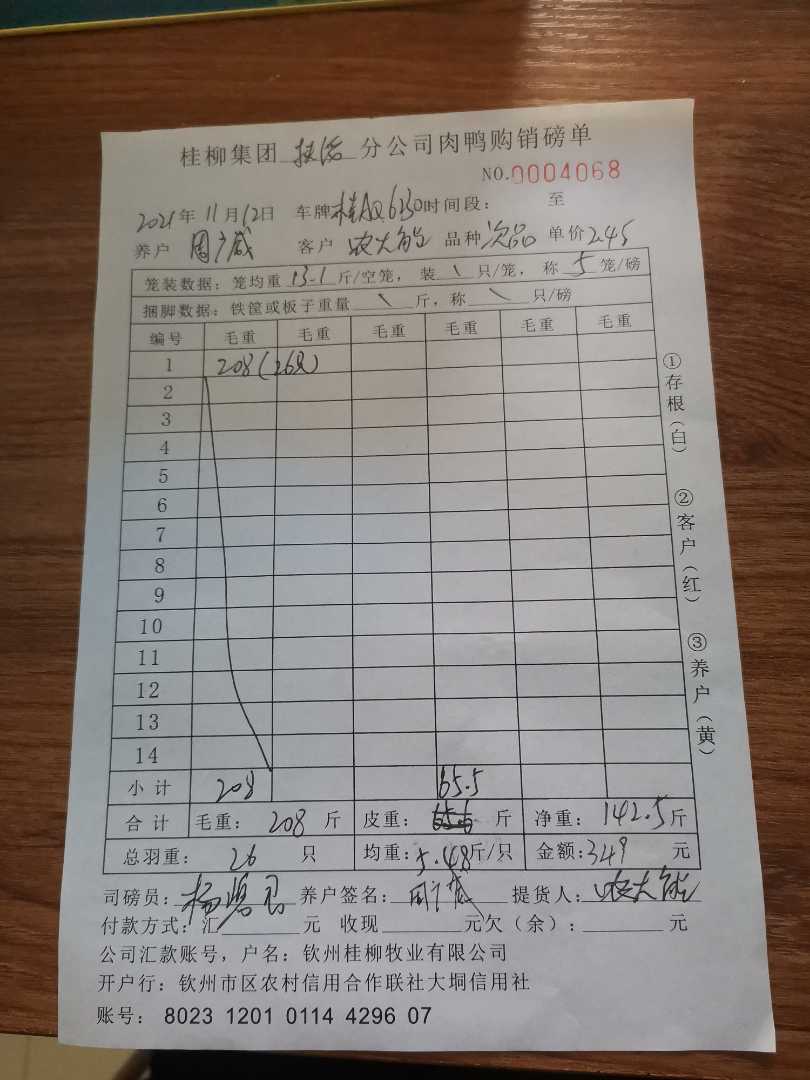 桂柳集团 扶绥 分公司肉鸭购销磅单
NO.0004068
2021年 11月12日 车牌桂AQ6130时间段： 至
养户 周广威 客户 农大能 品种次品 单价2.45
笼装数据：笼均重 13.1 斤/空笼，装 \ 只/笼，称 5 笼/磅
捆脚数据：铁筐或板子重量 \ 斤，称 \ 只/磅
编号 毛重 毛重 毛重 毛重 毛重 毛重
1 208(26只)
2
3
4
5
6
7
8
9
10
11
12
13
14
小计 208 65.5
合计 毛重： 208 斤 皮重： 斤 净重： 142.5斤
总羽重： 26 只 均重：5.48斤/只 金额：349 元
司磅员： 养户签名：周广威 提货人：农大能
付款方式：汇 元 收现 元欠（余）： 元
公司汇款账号，户名：钦州桂柳牧业有限公司
开户行：钦州市区农村信用合作联社大垌信用社
账号： 8023 1201 0114 4296 07
①存根（白） ②客户（红） ③养户（黄）